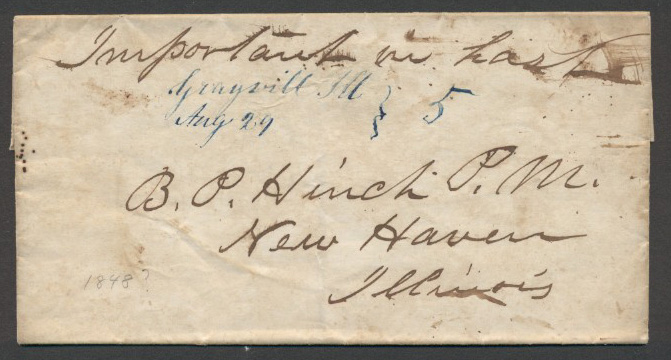 Important in hast
Grayvill Ill } 5
Aug 29
B. P. Hinch P. M.
New Haven
Illinois
1848?